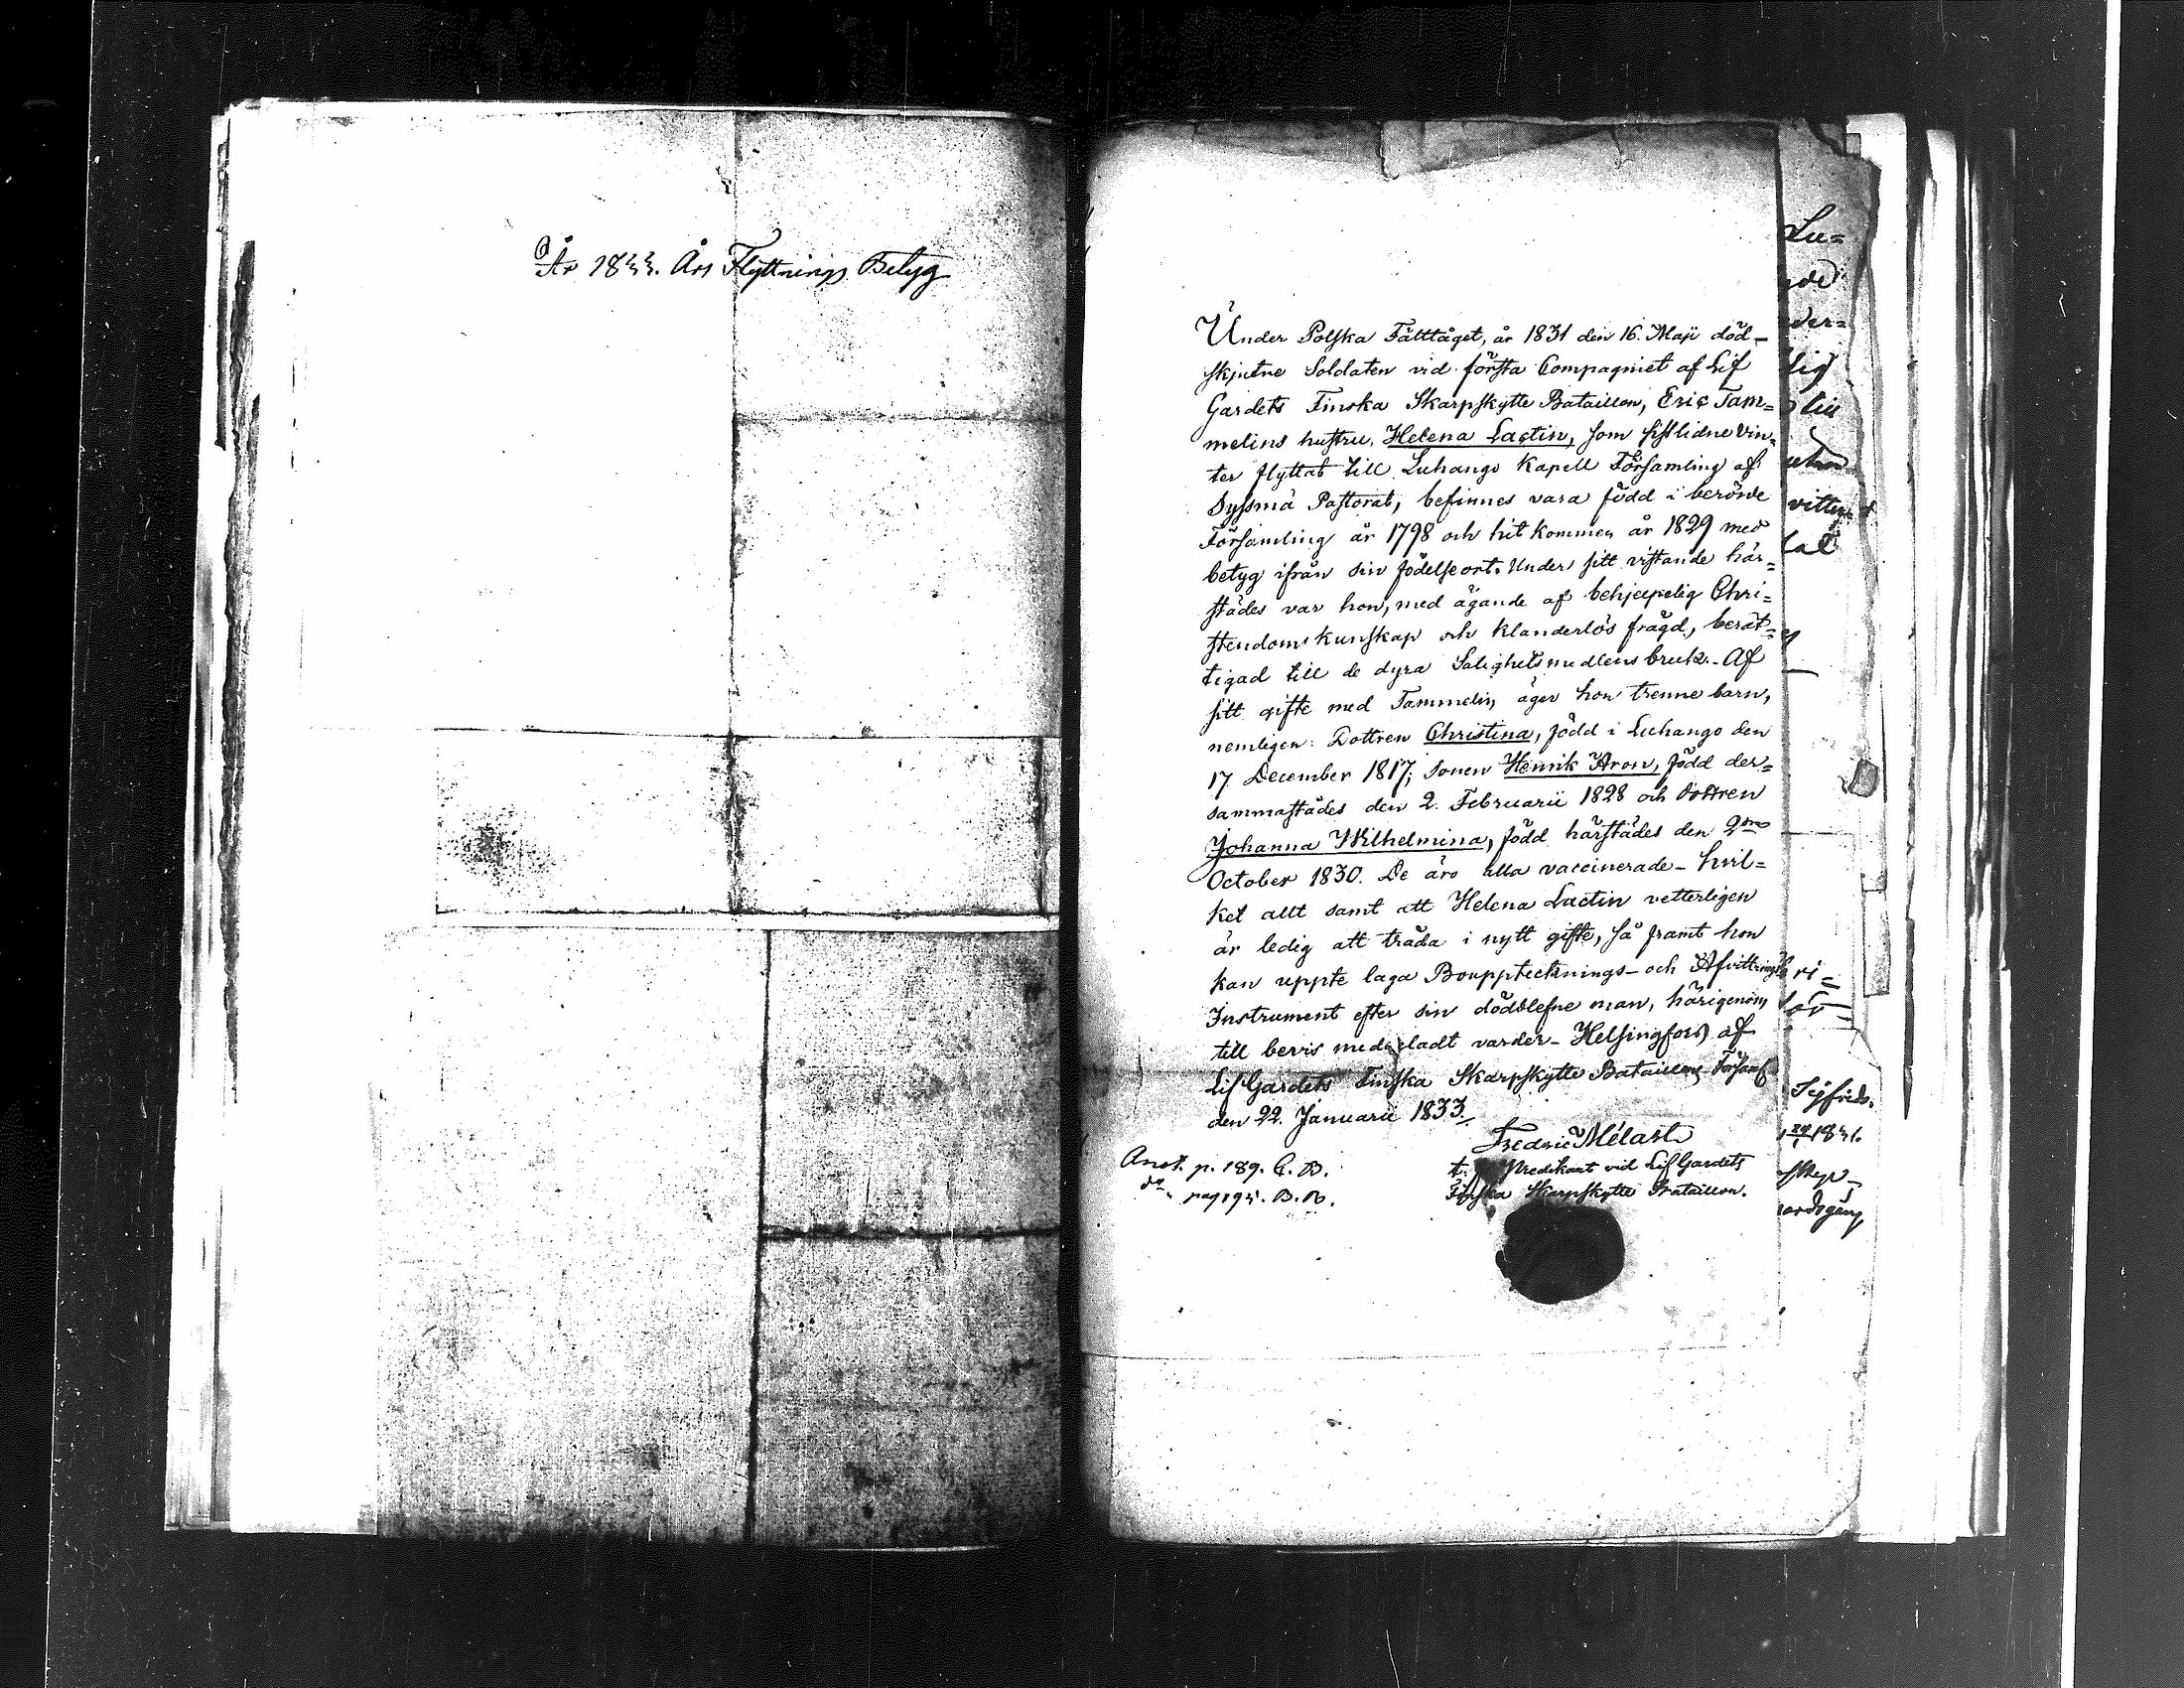 År 1833. Års Flyttnings Betyg
Under Polska Fälttåget, år 1831 den 16. Maji död-
skjutne Soldaten vid första Compagniet af Lif
Gardets Finska Skarpskytte Bataillon, Eric Tam=
melins hustru, Helena Lactin, som sistlidne Vin=
ter flyttat till Luhango Kapell Församling af
Sysmä Pastorat, befinnes vara född i berörde
Församling år 1798 och hit kommen år 1829 med
betyg ifrån sin födelseort. Under sitt vistande här=
städes var hon, med ägande af behjelpelig Chri=
stendoms kunskap och klanderlös frägd, berät=
tigad till de dyra Salighetsmedlens bruk. - Af
sitt gifte med Tammelin, äger hon trenne barn,
nemligen: Dottren Christina, född i Luhango den
17 December 1817; Sonen Henrik Aron, född der=
sammastädes den 2. Februarii 1828 och Dottren
Johanna Wilhelmina, född härstädes den 9de
October 1830. De äro alla vaccinerade - hvil=
ket allt samt att Helena Lactin vetterligen
är ledig att träda i nytt gifte, så framt hon
kan uppte laga Boupptecknings- och Afvittrings
Instrument efter sin dödblefne man, härigenom
till bevis meddeladt varder - Helsingfors af
Lif Gardets Finska Skarpskytte Bataillons Församl
den 22. Januarii 1833.
Fredric Mélart
t. Predikant vid Lif Gardets
Finska Skarpskytte Bataillon.
Anot. p. 189. C. B.
Lu=
der=
lig
vittn
Sigfrids.